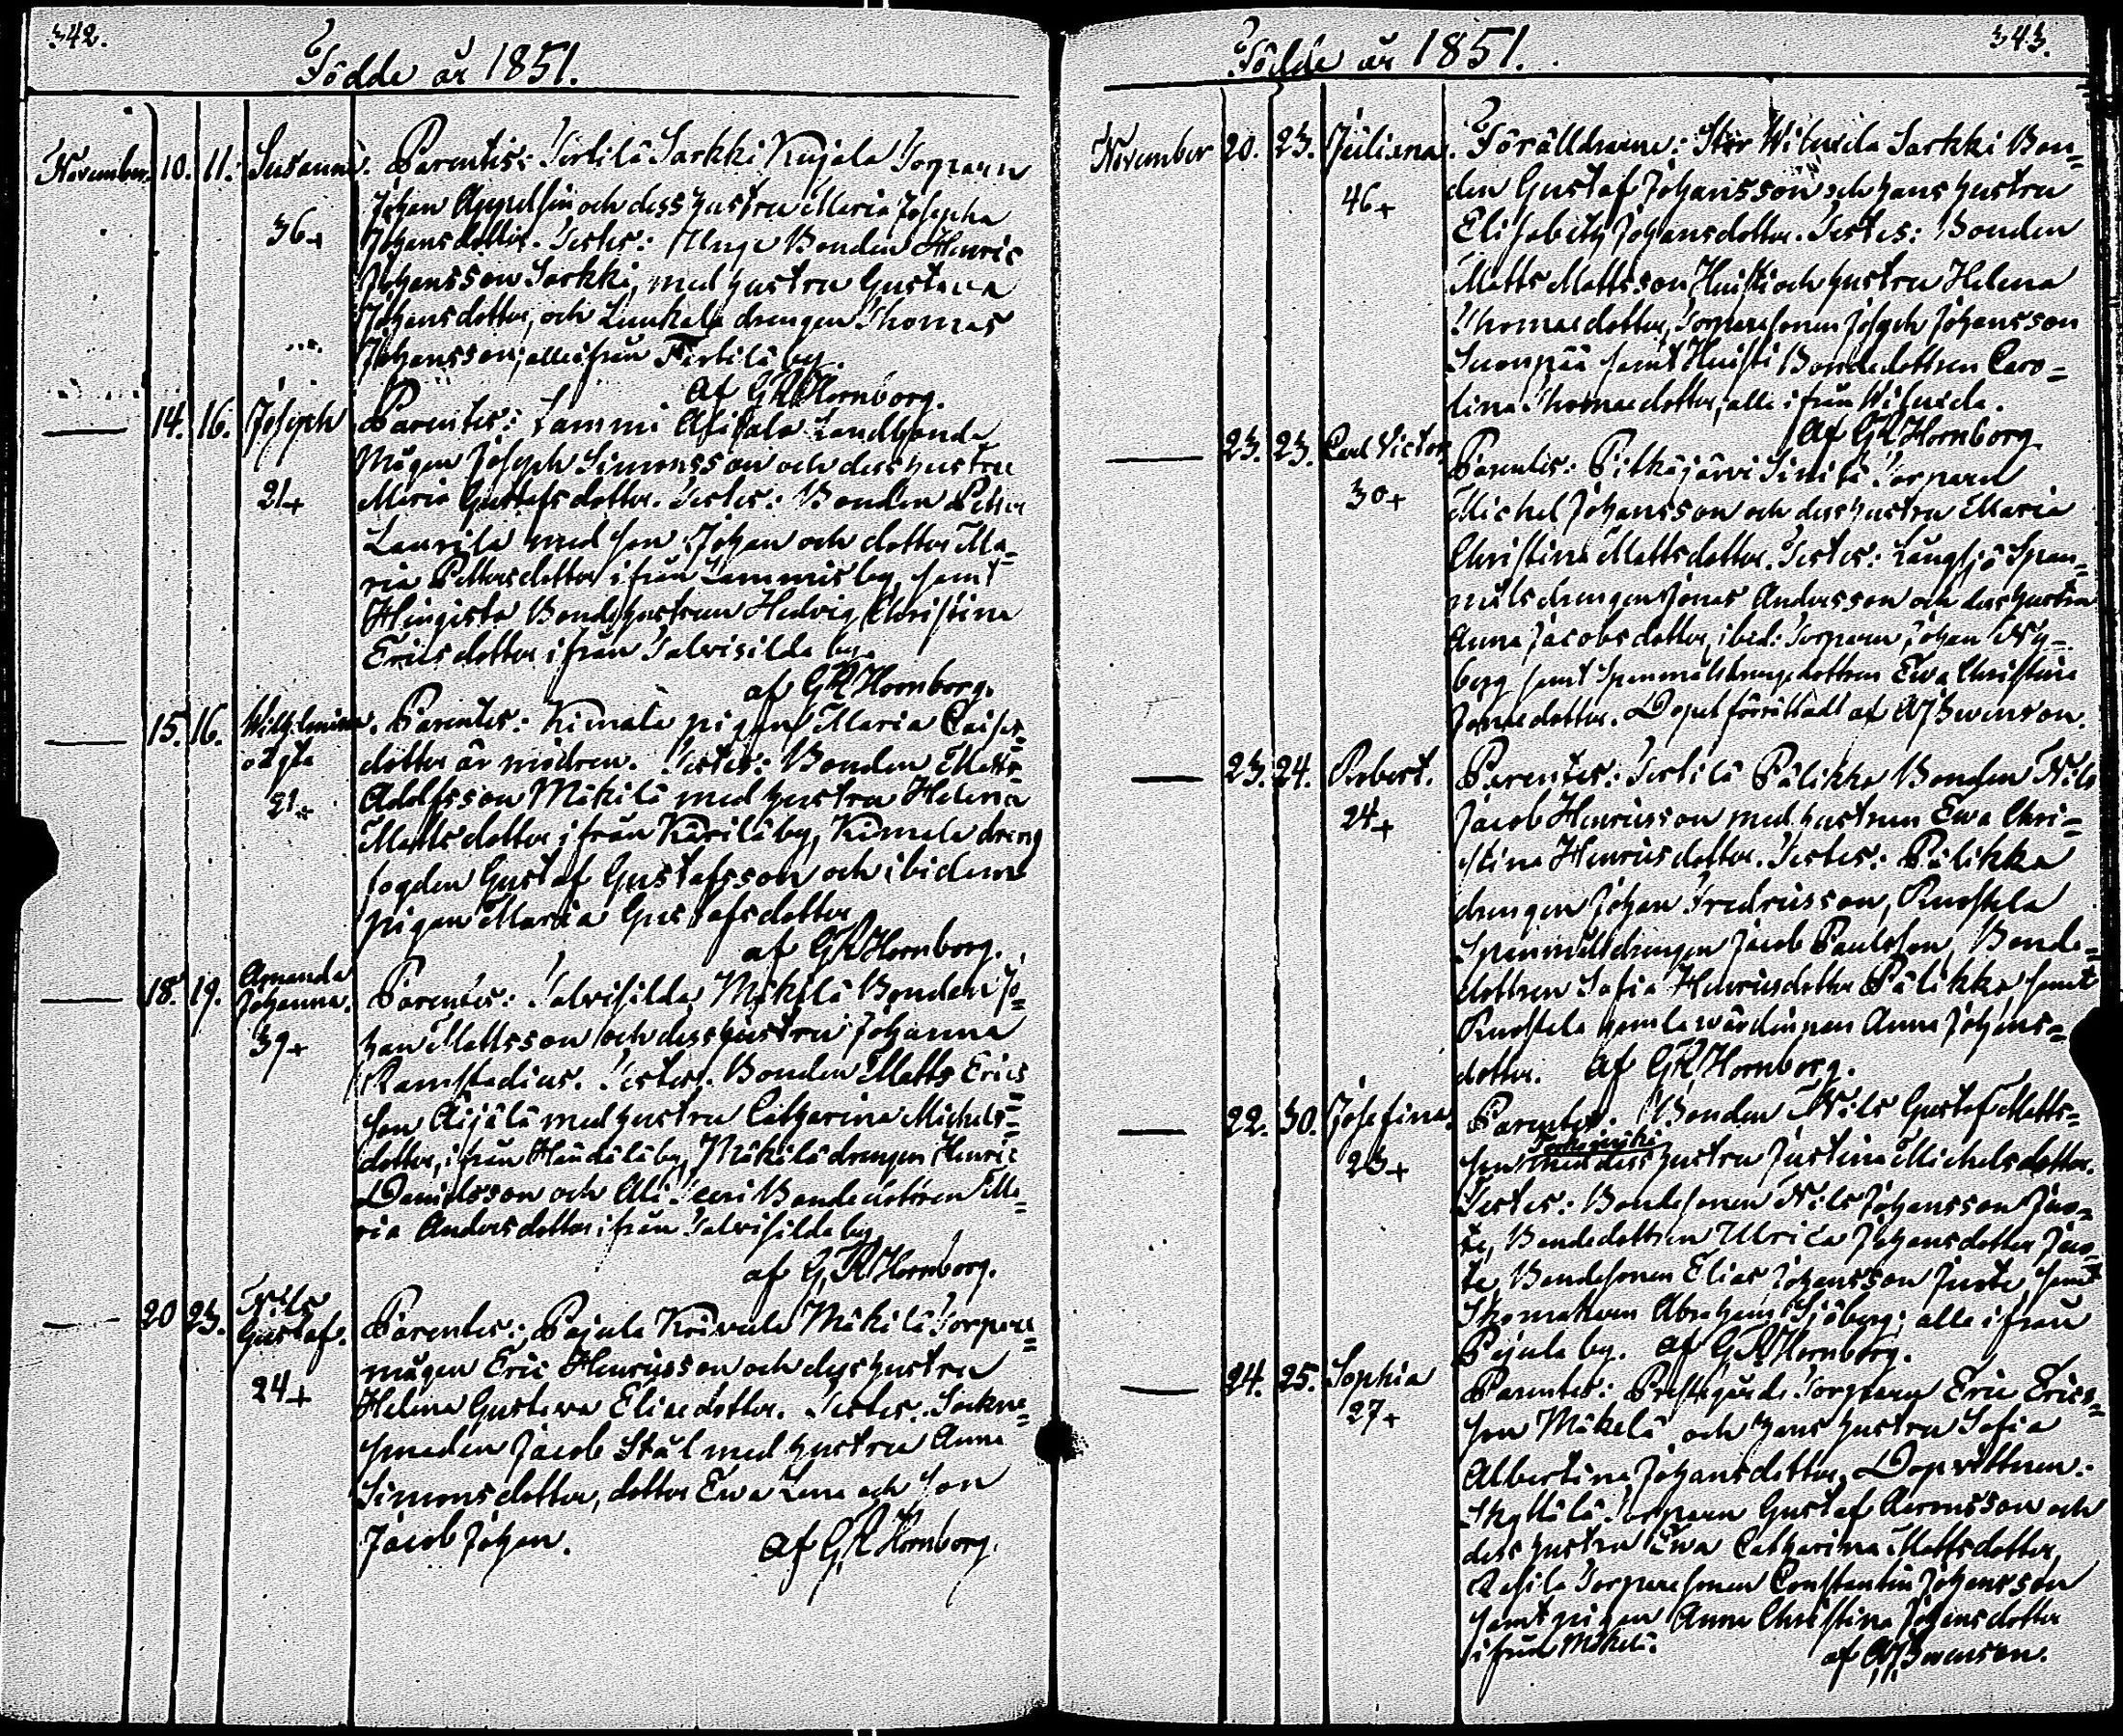 342.
Födde år 1851.
November. 10. 11. Susanna. Parentes: Tertilä Sarkki Kujala Torparen
Johan Appelsin och dess hustru Maria Josepha
36+ Johansdotter. Testes: Unge Bonden Henric
Johansson Sarkki, med hustru Gustava
Johansdotter, och drengen Thomas
Johansson; alle ifrån Tertilä by.
Af GR Hornborg.
14. 16. Joseph Parentes: Lammi Landbonde
mågen Joseph Simonsson och dess hustru
21+ Maria Gustafsdotter. Testes: Bonden Petter
Laurila med son Johan och dotter Ma=
ria Pettersdotter ifrån Lammis by, samt
Bondehustrun Hedvig Christina
Ericsdotter ifrån Talvisilda by.
af GR Hornborg.
15. 16. Wilhelmina. Parentes: Kimala pigan Maria
oägta dotter är modren. Testes: Bonden Matts
21+ Adolfsson Mäkilä med hustru Helena
Mattsdotter ifrån Kärilä by, Kimala dreng
fogden Gustaf Gustafsson och ibidem
pigan Maria Gustafsdotter
af GR Hornborg.
18. 19. Amanda
Johanna. Parentes: Talvisilda Mäkilä Bonden Jo=
39+ han Mattsson och dess hustru Johanna
Ramstadius. Testes. Bonden Matts Erics
son Äijälä med hustru Catharina Michels=
dotter, ifrån by, Mäkilä drengen Henric
Danielsson och Bondedottren Ma=
ria Andersdotter ifrån Talvisilda by
af GR Hornborg.
20 23. Nils
Gustaf. Parentes: Pajula Mäkilä Torpare
mågen Eric Henricsson och dess hustru
24+ Helena Gustava Eliaedotter. Testes. Sockne=
smeden Jacob Stål med hustru Anna
Simonsdotter, dotter Ewa Lena och son
Jacob Johan. Af GR Hornborg.
343.
Födde år 1851.
November 20. 23. Juliana. Föräldrarne: Stor Sarkki Bon=
46+ den Gustaf Johansson och hans hustru
Elisabeth Johansdotter. Testes: Bonden
Matts Mattsson Huisti och hustru Helena
Thomaedotter, Torparesonen Joseph Johansson
Suonpää samt Huisti Bondedottren Caro=
lina Thomaedotter, alla ifrån
Af GR Hornborg
23. 23. Carl Victor Parentes: Pitkäjärvi Torparen
30+ Michel Johansson och dess hustru Maria
Christina Mattsdotter. Testes: Långsjö Span=
målsdrengen Jonas Andersson och dess hustru
Anna Jacobsdotter, ibid: Torparen Johan Ny=
berg samt Spanmålsdrengedottren Ewa Christina
Jonaedotter. Dopet förrättadt af Swenson.
23. 24. Robert. Parentes: Tertilä Pälikkä Bonden Nils
24+ Jacob Henricsson med hustrun Ewa Chri=
stina Henricsdotter. Testes: Pälikkä
drengen Johan Fredricsson, Ruostela
Spanmålsdrengen Jacob Paulsson, Bonde=
dottren Sofia Henricsdotter Pälikkä, samt
Ruostela gamla wärdinnan Anna Johans=
dotter. Af GR Hornborg.
22. 30. Josefina. Parentes. Bonden Nils Gustaf Matts=
23+ son med dess hustru Justina Michelsdotter.
Testes: Bondesonen Nils Johansson Juu=
te, Bondedottren Ulrica Johansdotter Juu=
te, Bondesonen Elias Johansson Juute, samt
Skomakaren Abraham Sjöberg; alle ifrån
Pajula by. af GR Hornborg.
24. 25. Sophia Parentes: Prestgårds Torparen Eric Erics=
27+ son Mäkelä och hans hustru Sofia
Albertina Johansdotter, Dopvittnen:
Skyttälä Torparen Gustaf Aaronsson och
dess hustru Ewa Catharina Mattsdotter
Torparesonen Constantin Johansson
samt pigan Anna Christina Johansdotter
ifrån Mäkelä.
af Swenson.